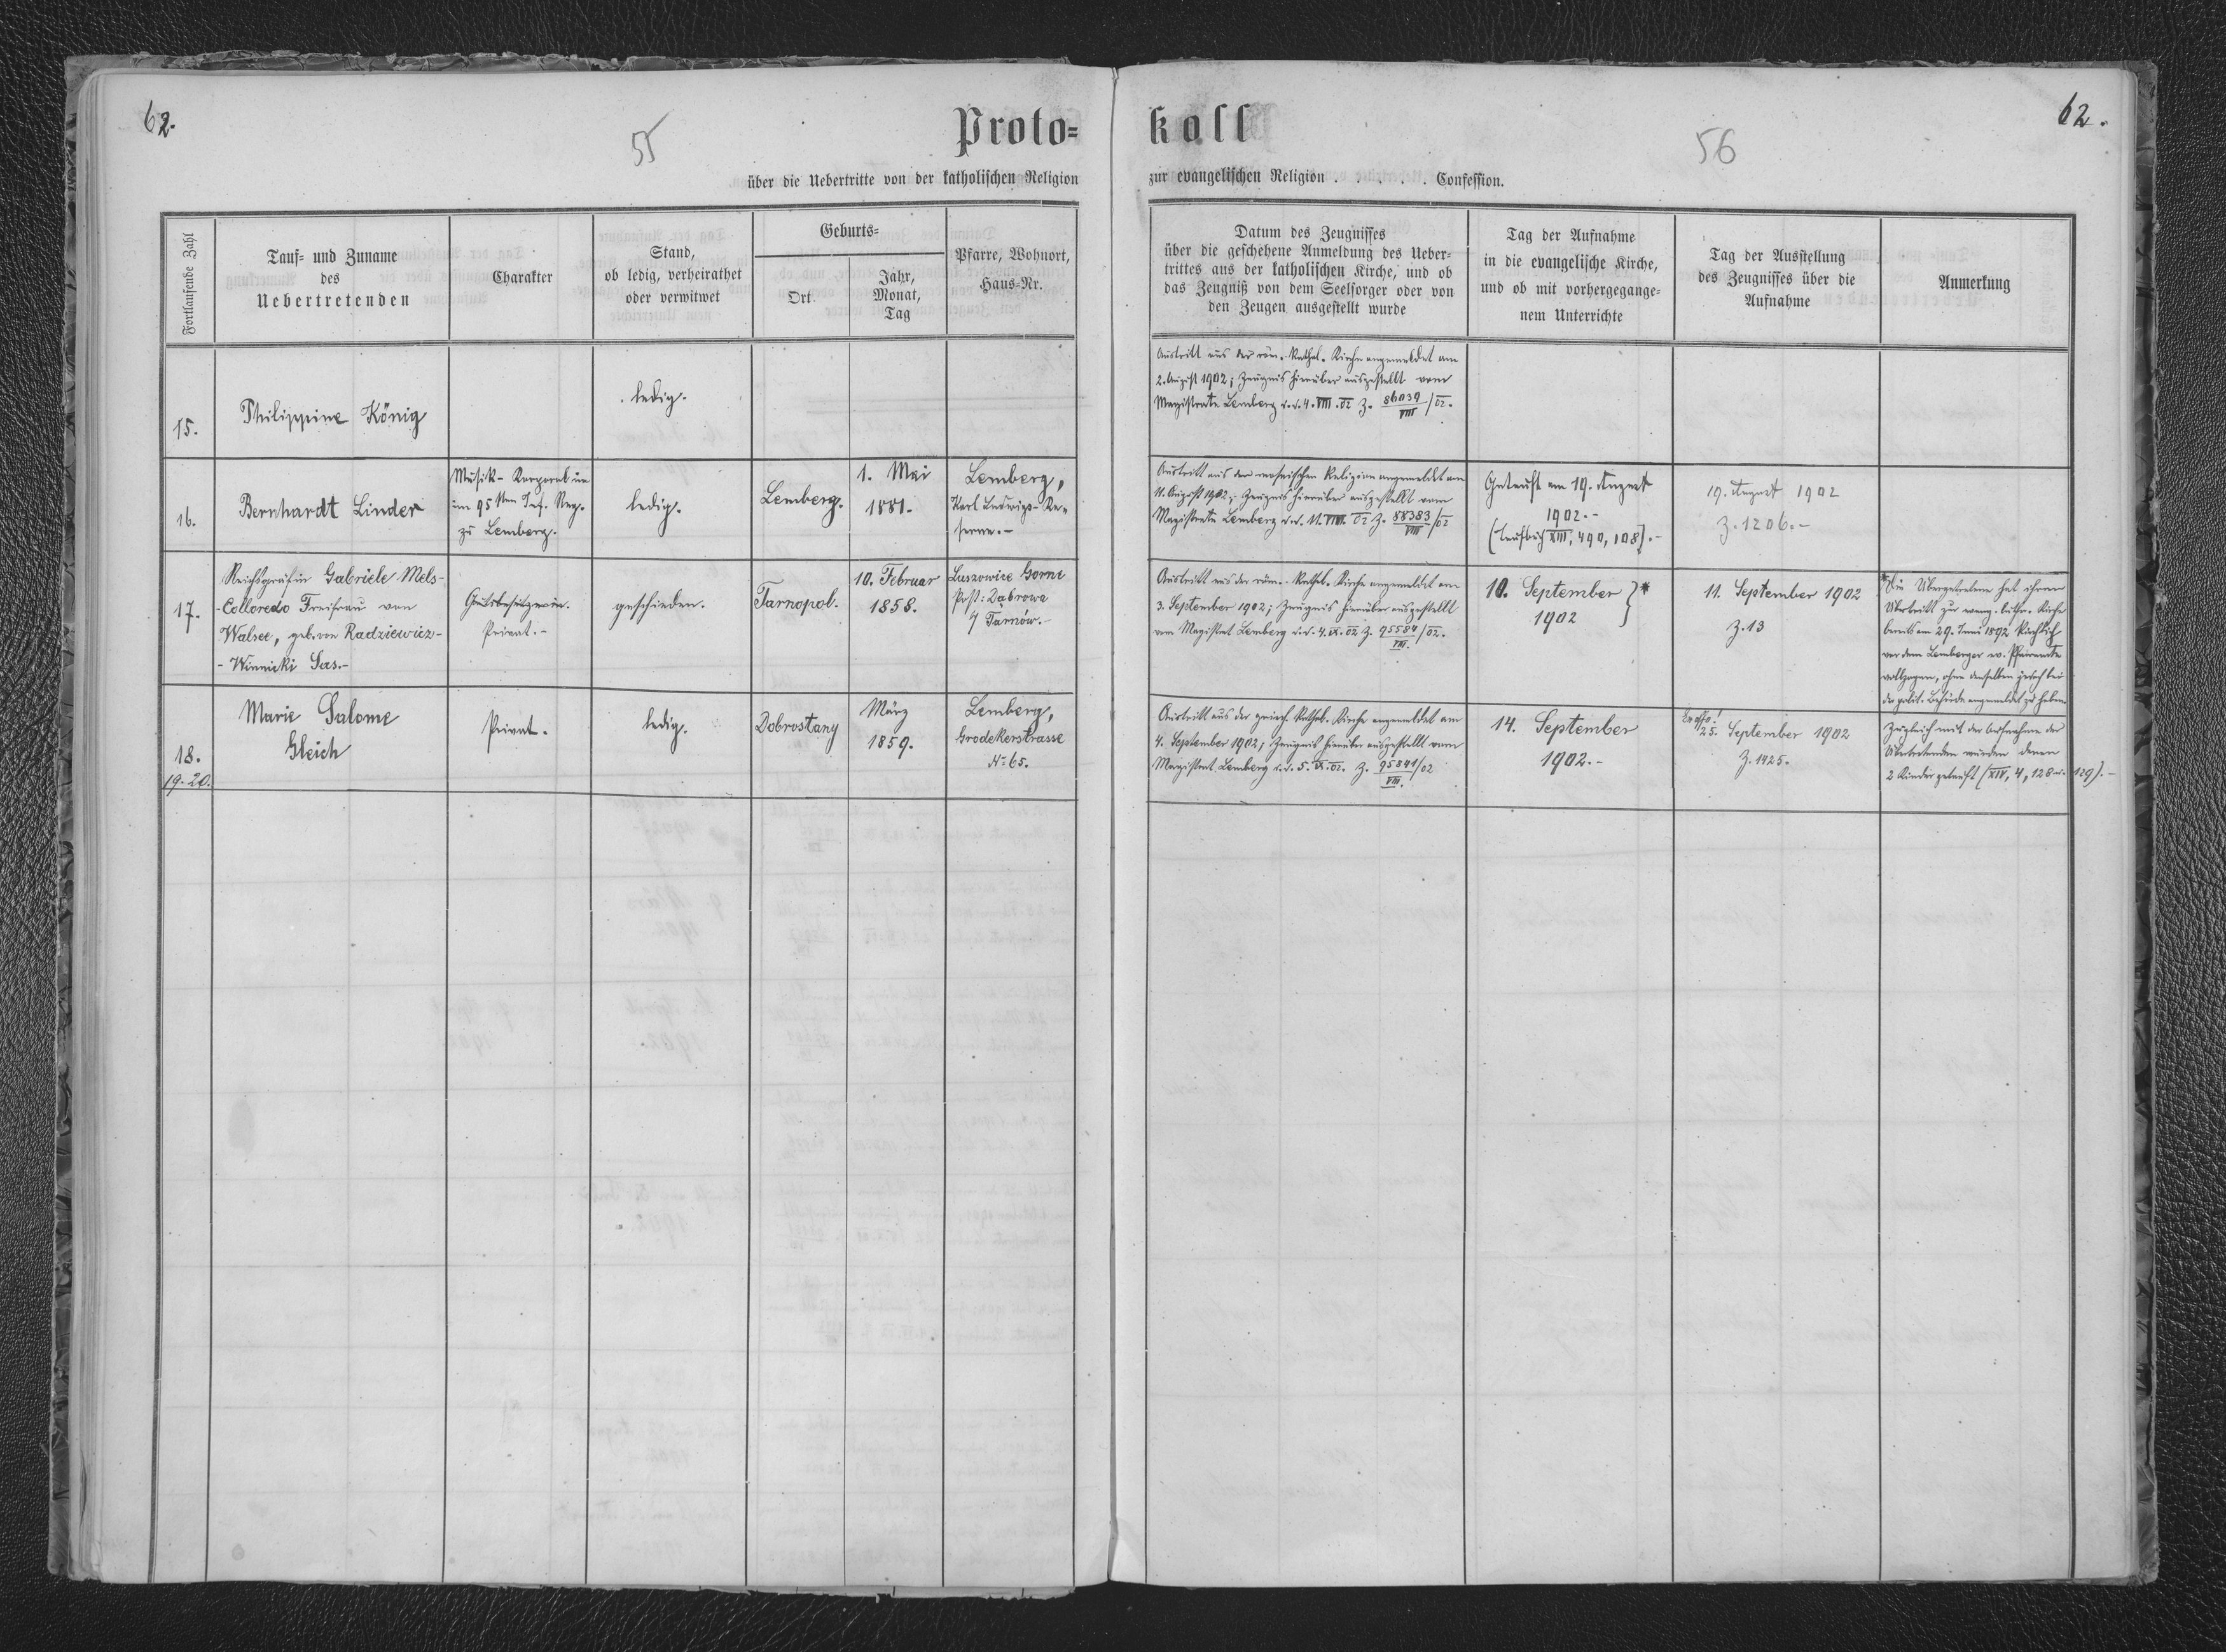 62.
55
Proto-
über die Uebertritte von der katholischen Religion
Fortlaufende Zahl
Tauf- und Zuname
des
Uebertretenden
Charakter
Stand,
ob ledig, verheirathet
oder verwitwet
Geburts-
Ort
Jahr,
Monat,
Tag
Pfarre, Wohnort,
Haus-Nr.
15.
Philippine König
ledig.
16.
Bernhardt Linder
Musik-Korporal im
im 95sten Inf. Reg.
zu Lemberg.
ledig.
Lemberg.
1. Mai
1881.
Lemberg,
Karl Ludwigs-Ka-
serne.-
17.
Reichsgräfin Gabriele Mels-
-Colloredo Freifrau von
Walsee, geb. von Radziewicz-
-Winnicki Sas.-
Gutsbesitzerin.
Privat.-
geschieden.
Tarnopol.
10. Februar
1858.
Luszowice Gorne
Post: Dąbrowa
Tarnów.-
18.
19-20.
Marie Salome
Gleich
Privat.
ledig.
Dobrostany
März
1859.
Lemberg,
Grodekerstrasse
No 65.
koll
56
62.
zur evangelischen Religion . . . . . . Confession.
Datum des Zeugnisses
über die geschehene Anmeldung des Ueber-
trittes aus der katholischen Kirche, und ob
das Zeugniß von dem Seelsorger oder von
den Zeugen ausgestellt wurde
Tag der Aufnahme
in die evangelische Kirche,
und ob mit vorhergegange-
nem Unterrichte
Tag der Ausstellung
des Zeugnisses über die
Aufnahme
Anmerkung
Austritt aus der röm.-kathol. Kirche angemeldet am
2. August 1902; Zeugnis hierüber ausgestellt vom
Magistrate Lemberg v. d. 4. VIII. 02 Z. 86039/VIII /02.
Austritt aus der mosaischen Religion angemeldet am
11. August 1902; Zeugnis hierüber ausgestellt vom
Magistrate Lemberg v. d. 11. VIII. 02 Z. 88383/VIII /02
Getauft am 19. August
1902.-
(Taufbuch XIII, 490, 108).-
19. August 1902
Z. 1206.-
Austritt aus der röm.-kathol. Kirche angemeldet am
3. September 1902; Zeugnis hierüber ausgestellt
vom Magistrat Lemberg v. d. 4. IX. 02 Z. 95584/VIII. /02.
10. September } *
1902
11. September 1902
Z. 13
* Die Übergetretene hat ihren
Übertritt zur evang. luther. Kirche
bereits am 29. Juni 1892 kirchlich
vor dem Lemberger ev. Pfarramte
vollzogen, ohne denselben jedoch bei
der polit. Behörde angemeldet zu haben.
Austritt aus der griech. kathol. Kirche angemeldet am
4. September 1902; Zeugnis hierüber ausgestellt vom
Magistrat Lemberg v. d. 5. IX. 02. Z. 95841/VIII. /02
14. September
1902.-
Ex offo!
25. September 1902
Z. 1425.
Zugleich mit der Aufnahme der
Übertretenden wurden deren
2 Kinder getauft (XIV, 4, 128 u. 129).-